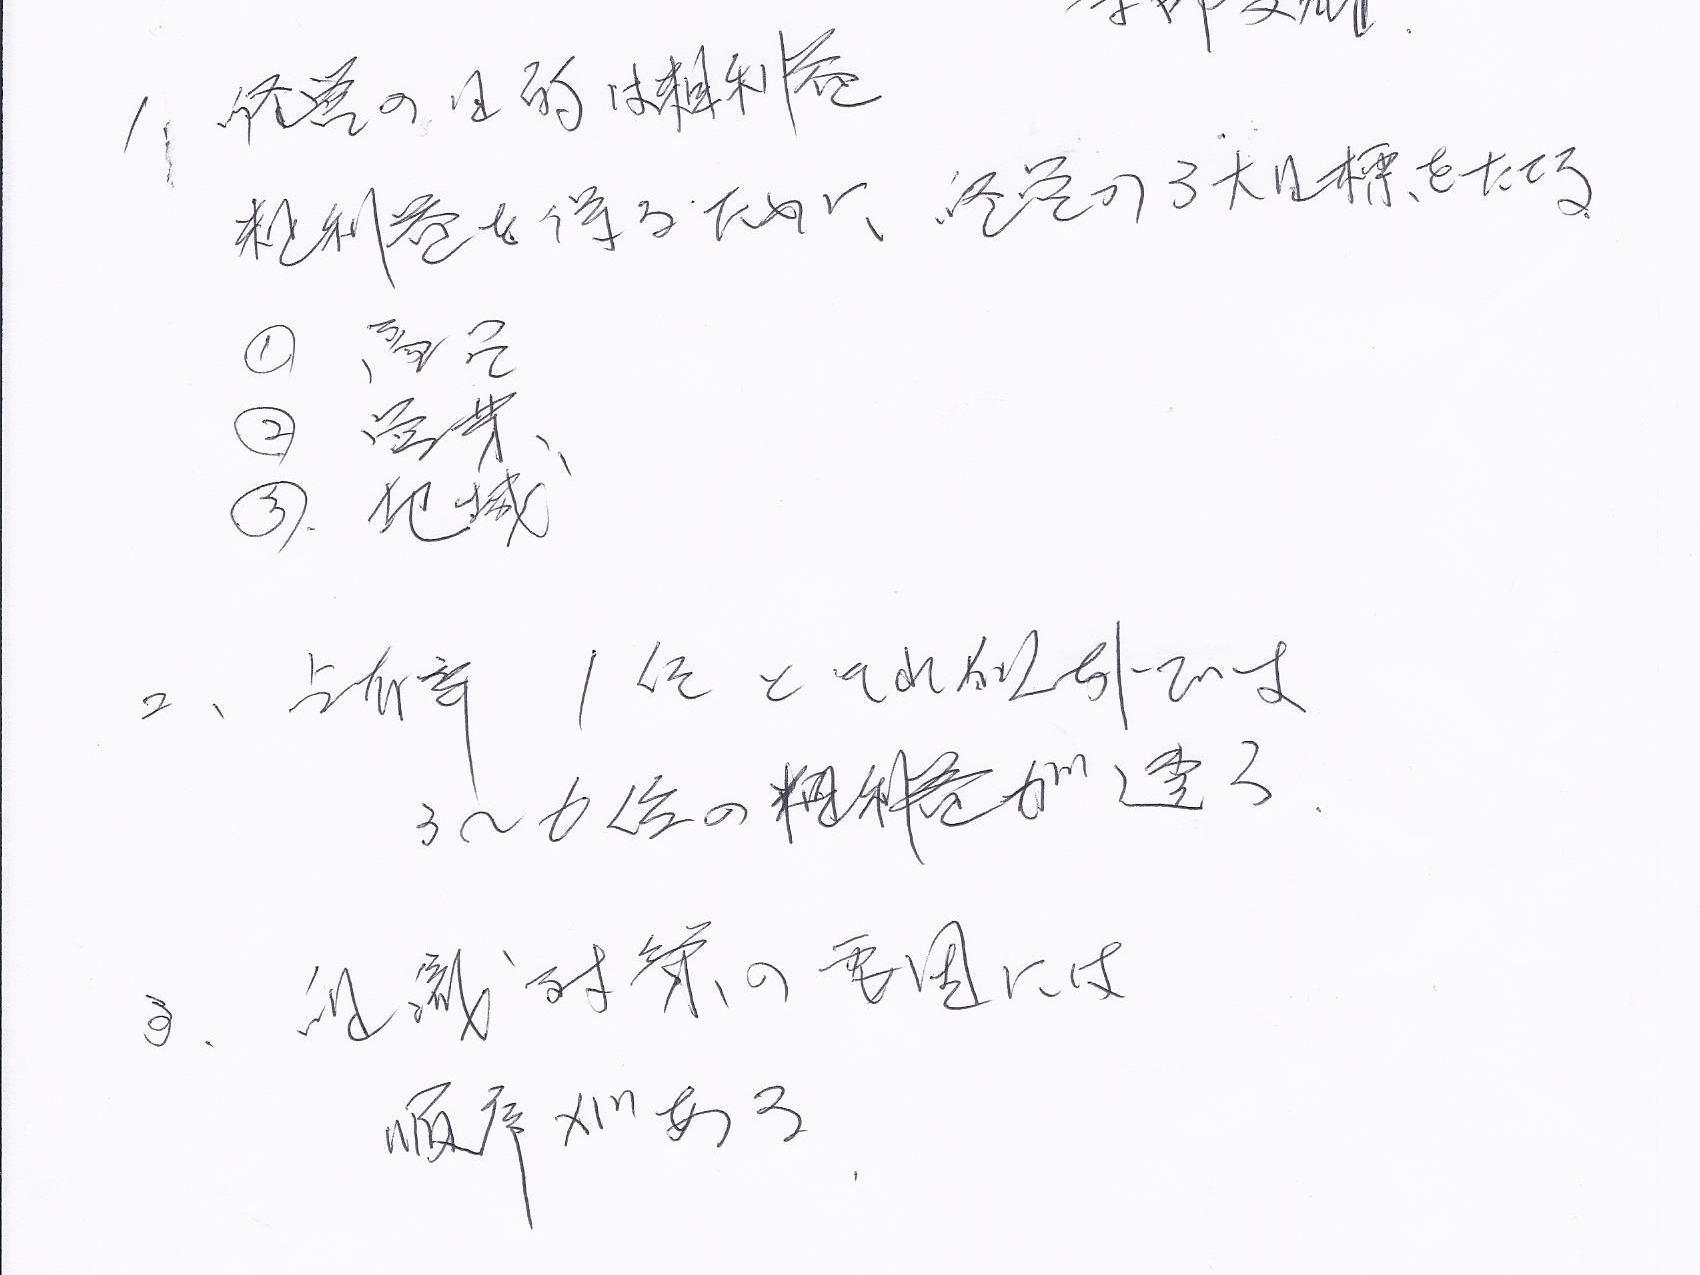 1. 経営の目的は粗利益
粗利益を得るために、経営の3大目標をたてる
① 商品
② 営業
③. 地域
2、占有率 1位とそれ以外では
3～6倍の粗利益が違う.
3. 組織対策の要因には
順序がある.